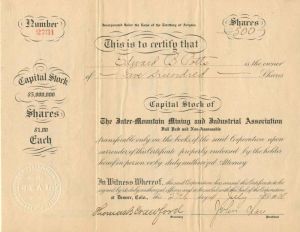 Number
2731
Incorporated Under the Laws of the Territory of Arizona
Shares
500
This is to certify that
Edward B. is the owner
of Five Hundred Shares
Capital Stock
$5,000,000
Shares
$1.00
Each
Capital Stock of
The Inter-Mountain Mining and Industrial Association
Full Paid and Non-Assessable
transferable only on the books of the said Corporation upon
surrender of this Certificate properly endorsed by the holder
hereof in person or by duly authorized Attorney
In Witness Whereof, the said Corporation has caused this Certificate to be
signed by its duly authorized officers and sealed with the Seal of the Corporation
at Denver, Colo., this day of July
Thomas Crawford
John
Secretary
President